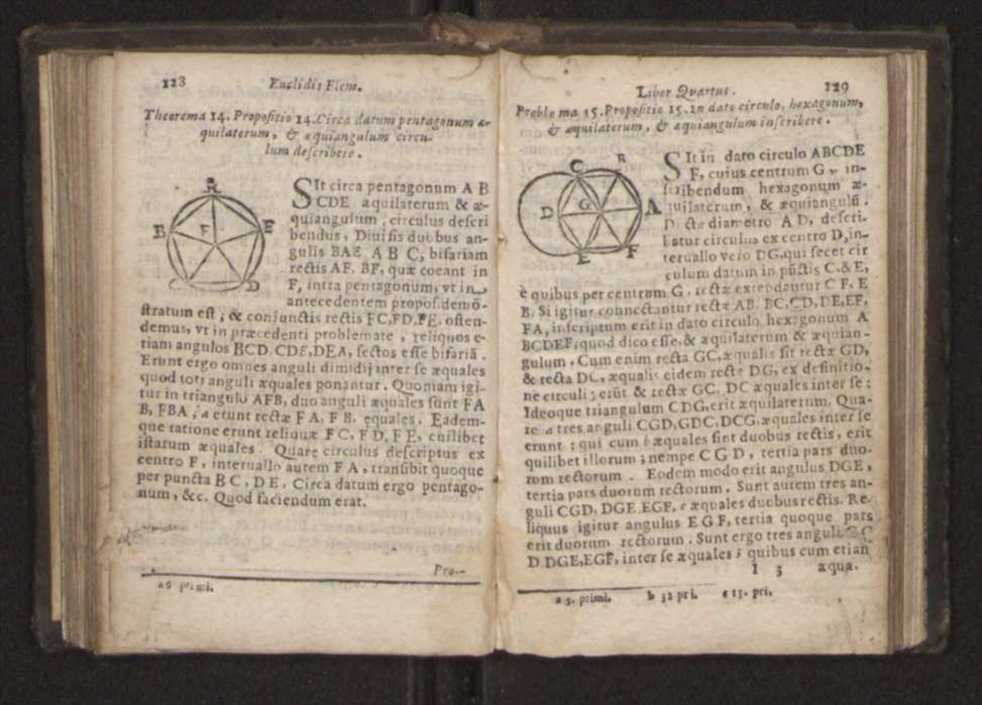 128
Euclidis Elem.
Theorema 14. Propositio 14. Circa datum pentagonum æ-
quilaterum, & æquiangulum circu-
lum describere.
A
B
E
F
C
D
SIt circa pentagonum A B
CDE æquilaterum & æ-
quiangulum, circulus descri
bendus, Diuisis duobus an-
gulis BAE A B C, bifariam
rectis AF, BF, quæ coeant in
F, intra pentagonum, vt in
antecedentem propos. demõ-
stratum est; & coniunctis rectis FC,FD,FE. osten-
demus, vt in præcedenti problemate, reliquos e-
tiam angulos BCD, CDE, DEA, sectos esse bifariã.
Erunt ergo omnes anguli dimidij inter se æquales
quod toti anguli æquales ponantur. Quoniam igi-
tur in triangulo AFB, duo anguli æquales sunt FA
B, FBA, a erunt rectæ F A, F B. equales. Eadem-
que ratione erunt reliquæ FC, FD, FE, cuilibet
istarum æquales. Quare circulus descriptus ex
centro F, interuallo autem F A, transibit quoque
per puncta B C, D E. Circa datum ergo pentago-
num, &c. Quod faciendum erat.
Pro-
a 6 primi.
Liber Quartus.
129
Proble ma 15. Propositio 15. In dato circulo, hexagonum,
& æquilaterum, & æquiangulum inscribere.
C
B
D
G
A
E
F
SIt in dato circulo ABCDE
F, cuius centrum G in-
scribendum hexagonum æ-
quilaterum, & æquiangulũ.
Ducta diametro A D, descri-
batur circulus ex centro D, in-
teruallo vero DG, qui secet cir
culum datum in pũctis C, & E,
è quibus per centrum G, rectæ extendantur C F, E
B. Si igitur connectantur rectæ AB, BC, CD, DE, EF,
FA, inscriptum erit in dato circulo hexagonum A
BCDEF, quod dico esse, & æquilaterum & æquian-
gulum. Cum enim recta GC, æqualis sit rectæ GD,
& recta DC, æqualis eidem rectæ DG, ex definitio-
ne circuli; erũt & rectæ GC, DC æquales inter se:
Ideoque triangulum CDG, erit æquilaterum. Qua-
re a tres anguli CGD, GDC, DCG, æquales inter se
erunt; qui cum b æquales sint duobus rectis, erit
quilibet illorum; nempe C G D, tertia pars duo-
rum rectorum. Eodem modo erit angulus DGE,
tertia pars duorum rectorum. Sunt autem tres an-
guli CGD, DGE, EGF, c æquales duobus rectis. Re-
liquus igitur angulus E G F, tertia quoque pars
erit duorum rectorum. Sunt ergo tres anguli C G
D DGE, EGF, inter se æquales; quibus cum etiam
I 3
æqua.
a 5. primi.
b 32 pri.
c 13. pri.